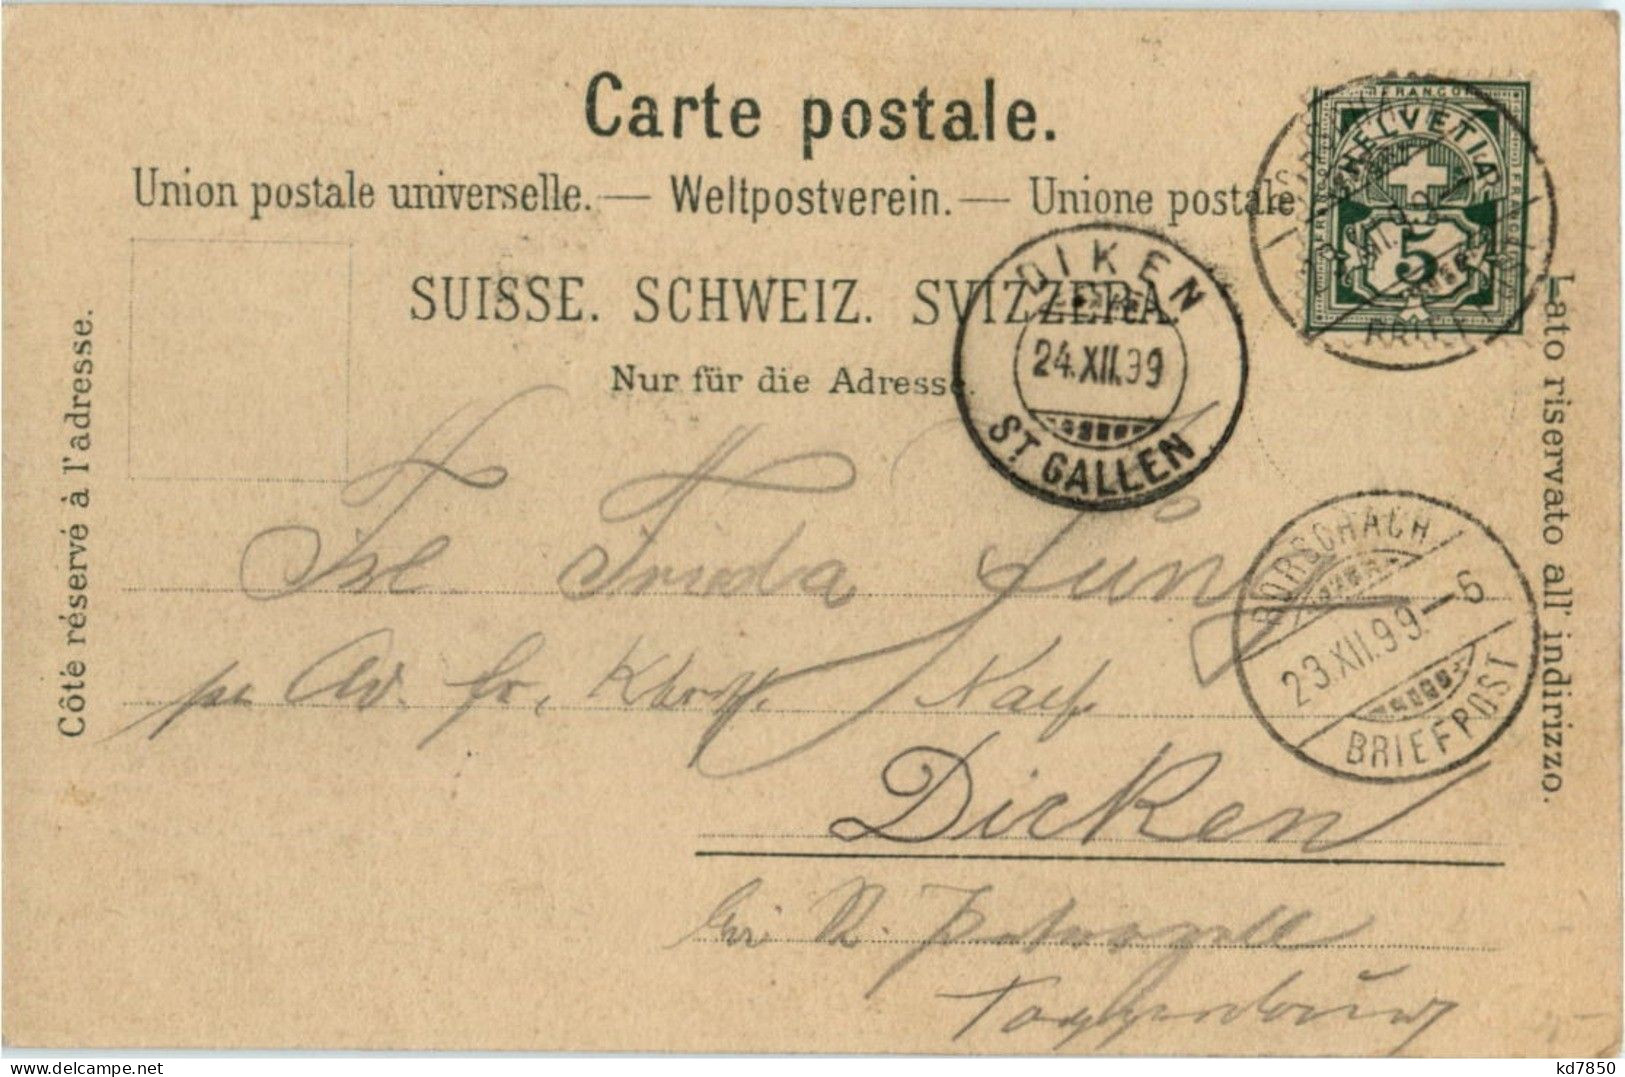 Carte postale.
Union postale universelle. — Weltpostverein. — Unione postale
SUISSE. SCHWEIZ. SVIZZERA.
Nur für die Adresse.
Côté réservé à l'adresse.
Lato riservato all' indirizzo.
FRANCO
HELVETIA
5
DIKEN
24.XII.99
ST. GALLEN
RORSCHACH
23.XII.99.–6
BRIEFPOST
Frl Frieda
Naef.
Dicken
St. Peterzell
Toggenburg
kd7850